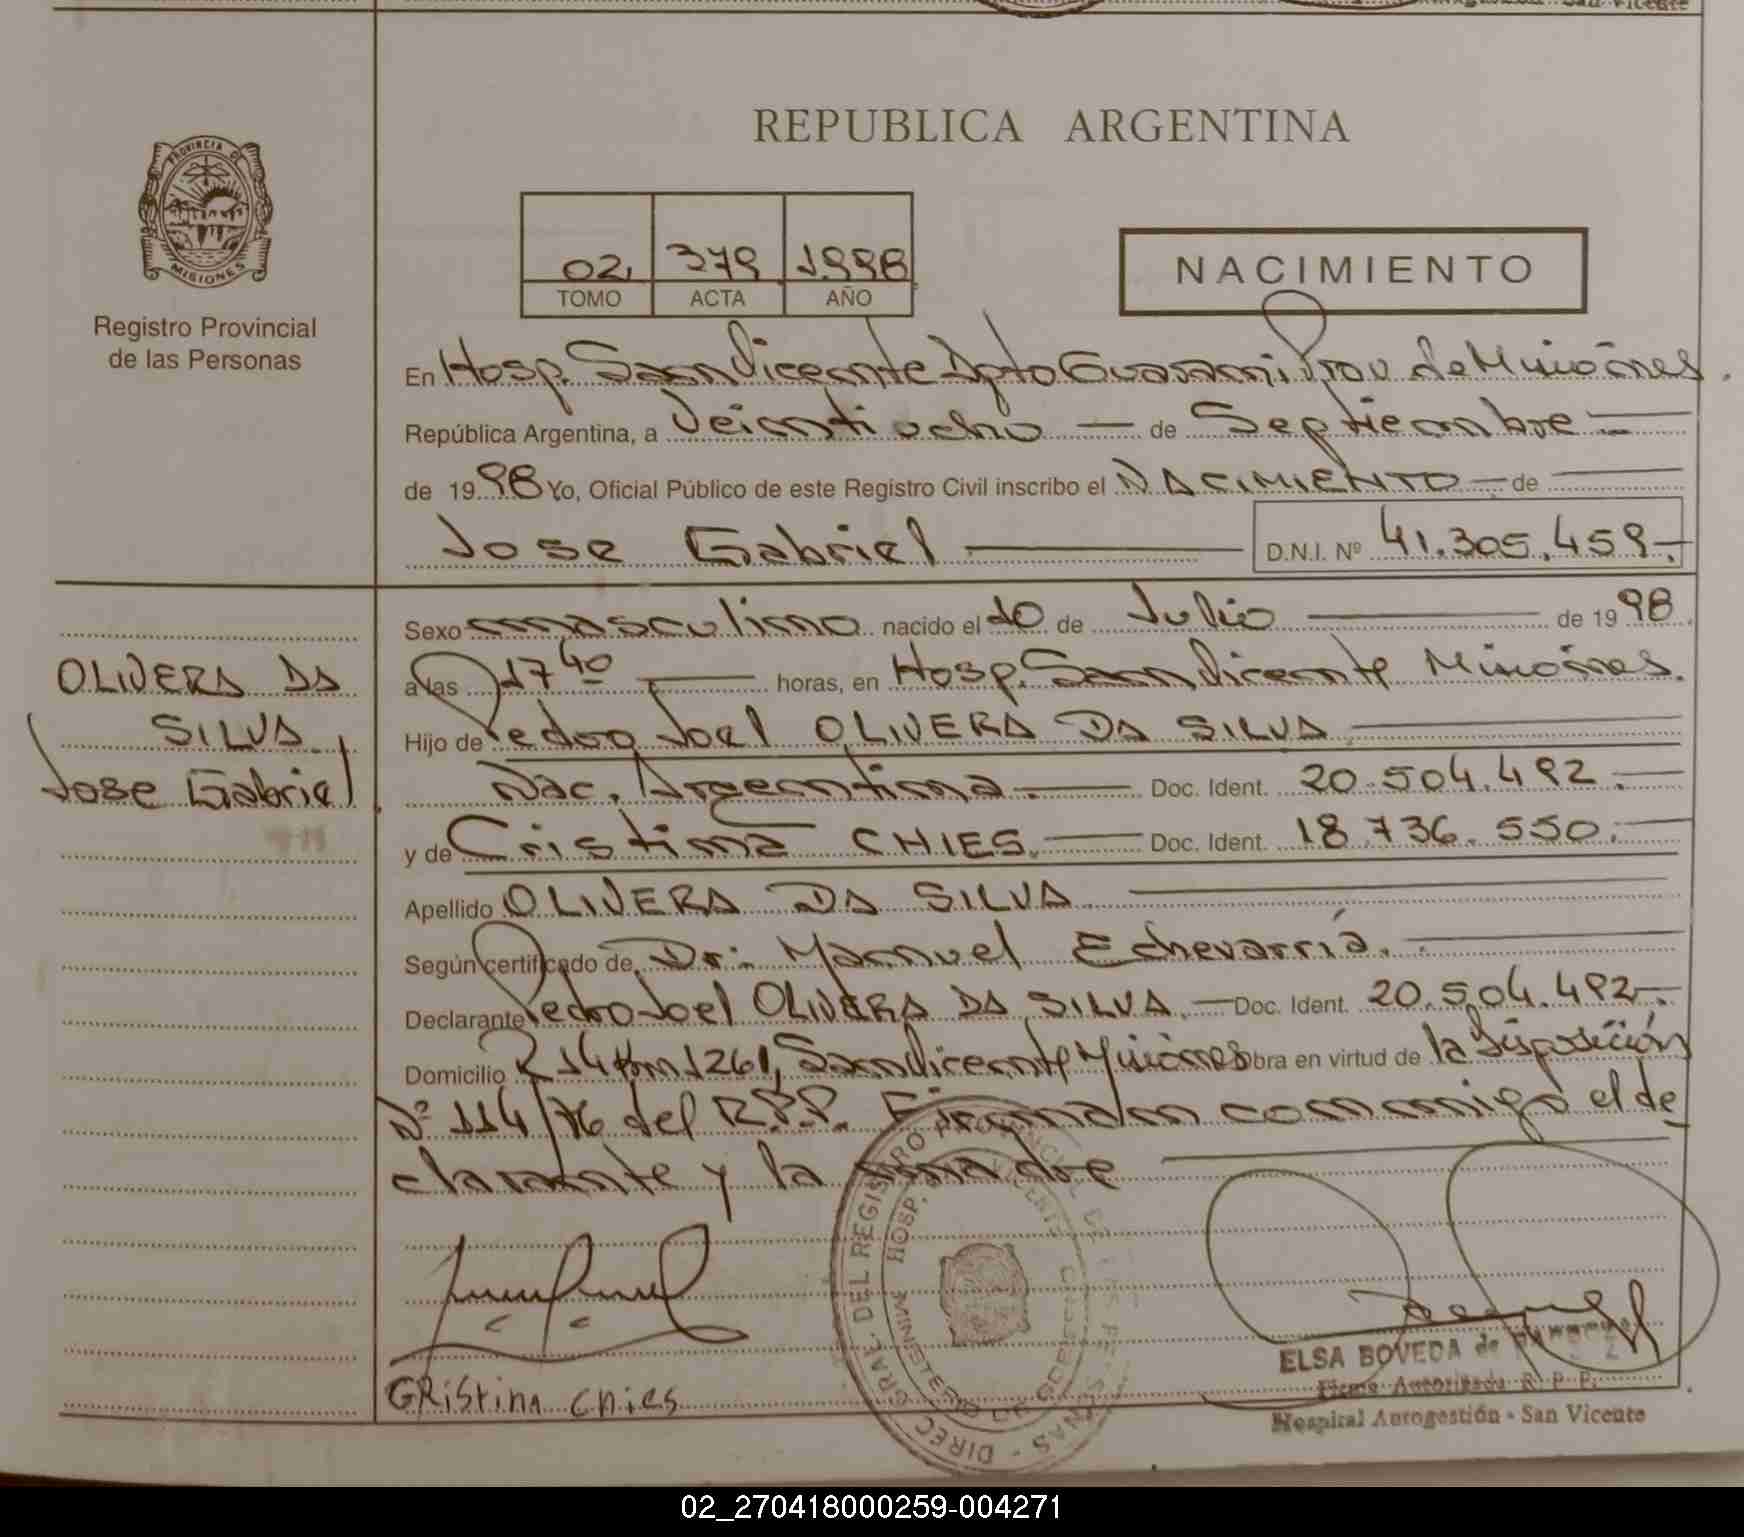 REPUBLICA ARGENTINA
PROVINCIA DE
MISIONES
Registro Provincial
de las Personas
02 379 1998
TOMO ACTA AÑO
NACIMIENTO
En Hosp. San Vicente Dpto Guarani Prov de Misiones.
República Argentina, a Veintiocho — de Septiembre —
de 1998 Yo, Oficial Público de este Registro Civil inscribo el NACIMIENTO — de
Jose Gabriel — D.N.I. Nº 41.305.459.-
Sexo masculino nacido el 10 de Julio — de 1998
a las 17 40 — horas, en Hosp. San Vicente Misiones.
Hijo de Pedro Joel OLIVERA DA SILVA —
Nac. Argentina. — Doc. Ident. 20.504.492.—
y de Cristina CHIES. — Doc. Ident. 18.736.550.—
Apellido OLIVERA DA SILVA —
Según certificado de Dr: Manuel Echevarría. —
Declarante Pedro Joel OLIVERA DA SILVA. — Doc. Ident. 20.504.492-.
Domicilio R 14 Km 1261, San Vicente Misiones obra en virtud de la Disposición
Nº 114/76 del R.P.P. Firman conmigo el de
clarante y la madre —
OLIVERA DA
SILVA
Jose Gabriel.
CRistina chies
DIREC. GRAL. DEL REGISTRO PROVINCIAL DE LAS PERSONAS
HOSP. VICENTE
MINISTERIO DE
ELSA BOVEDA de
Firma Autorizada R. P. P.
Hospital Autogestión - San Vicente
02_270418000259-004271